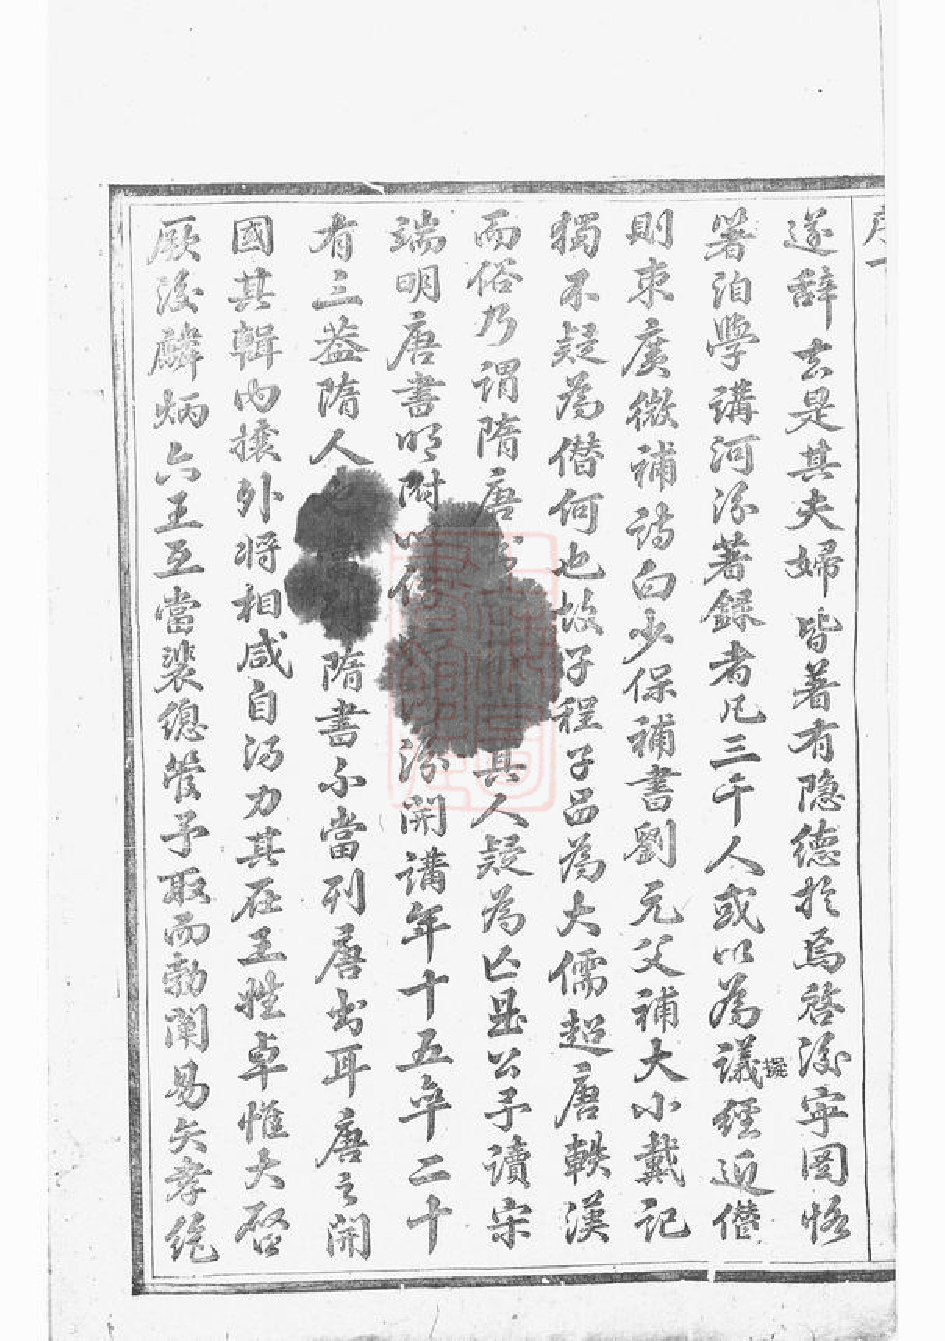 序一
遂辞去是其夫婦皆著有隐德於焉啓後寕罔恪
箸洎學講河汾著錄者凡三千人或以為議經近僣
擬
則束廣微補詩白少保補書劉元父補大小戴記
獨不疑為僣何也故子程子品為大儒超唐軼漢
而俗乃謂隋唐其人疑為亾是公予讀宋
端明唐書明附汾開講年十五卒二十
有三葢隋人隋書不當列唐出耳唐之開
國其輯内攘外将相咸自汾力其在王姓卓惟大啓
厥後麟炳六王互當裴總管予取而勃闡易矢孝絶